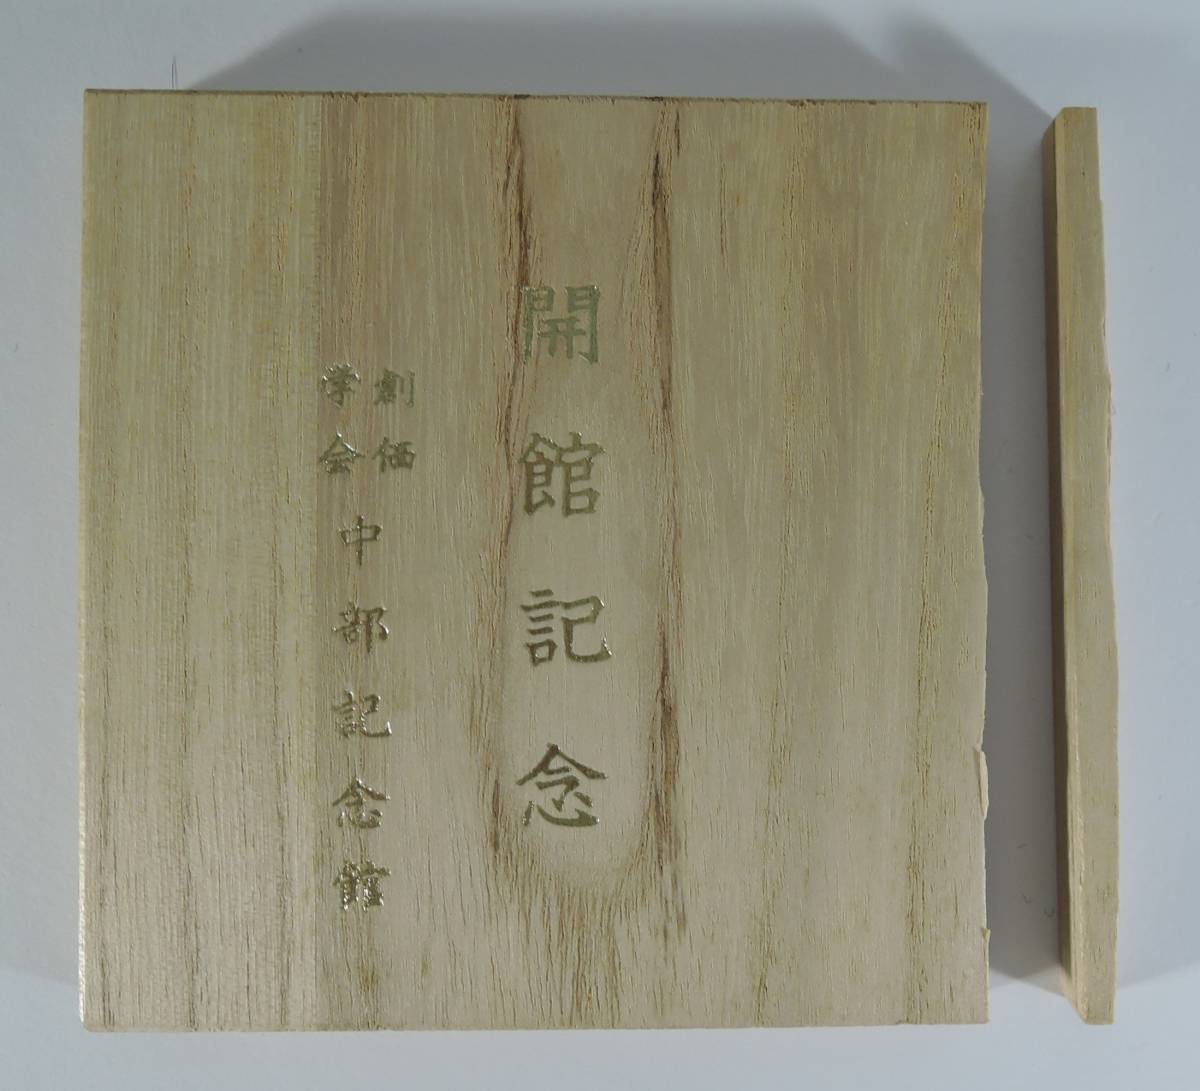 開館記念
創価学会中部記念館